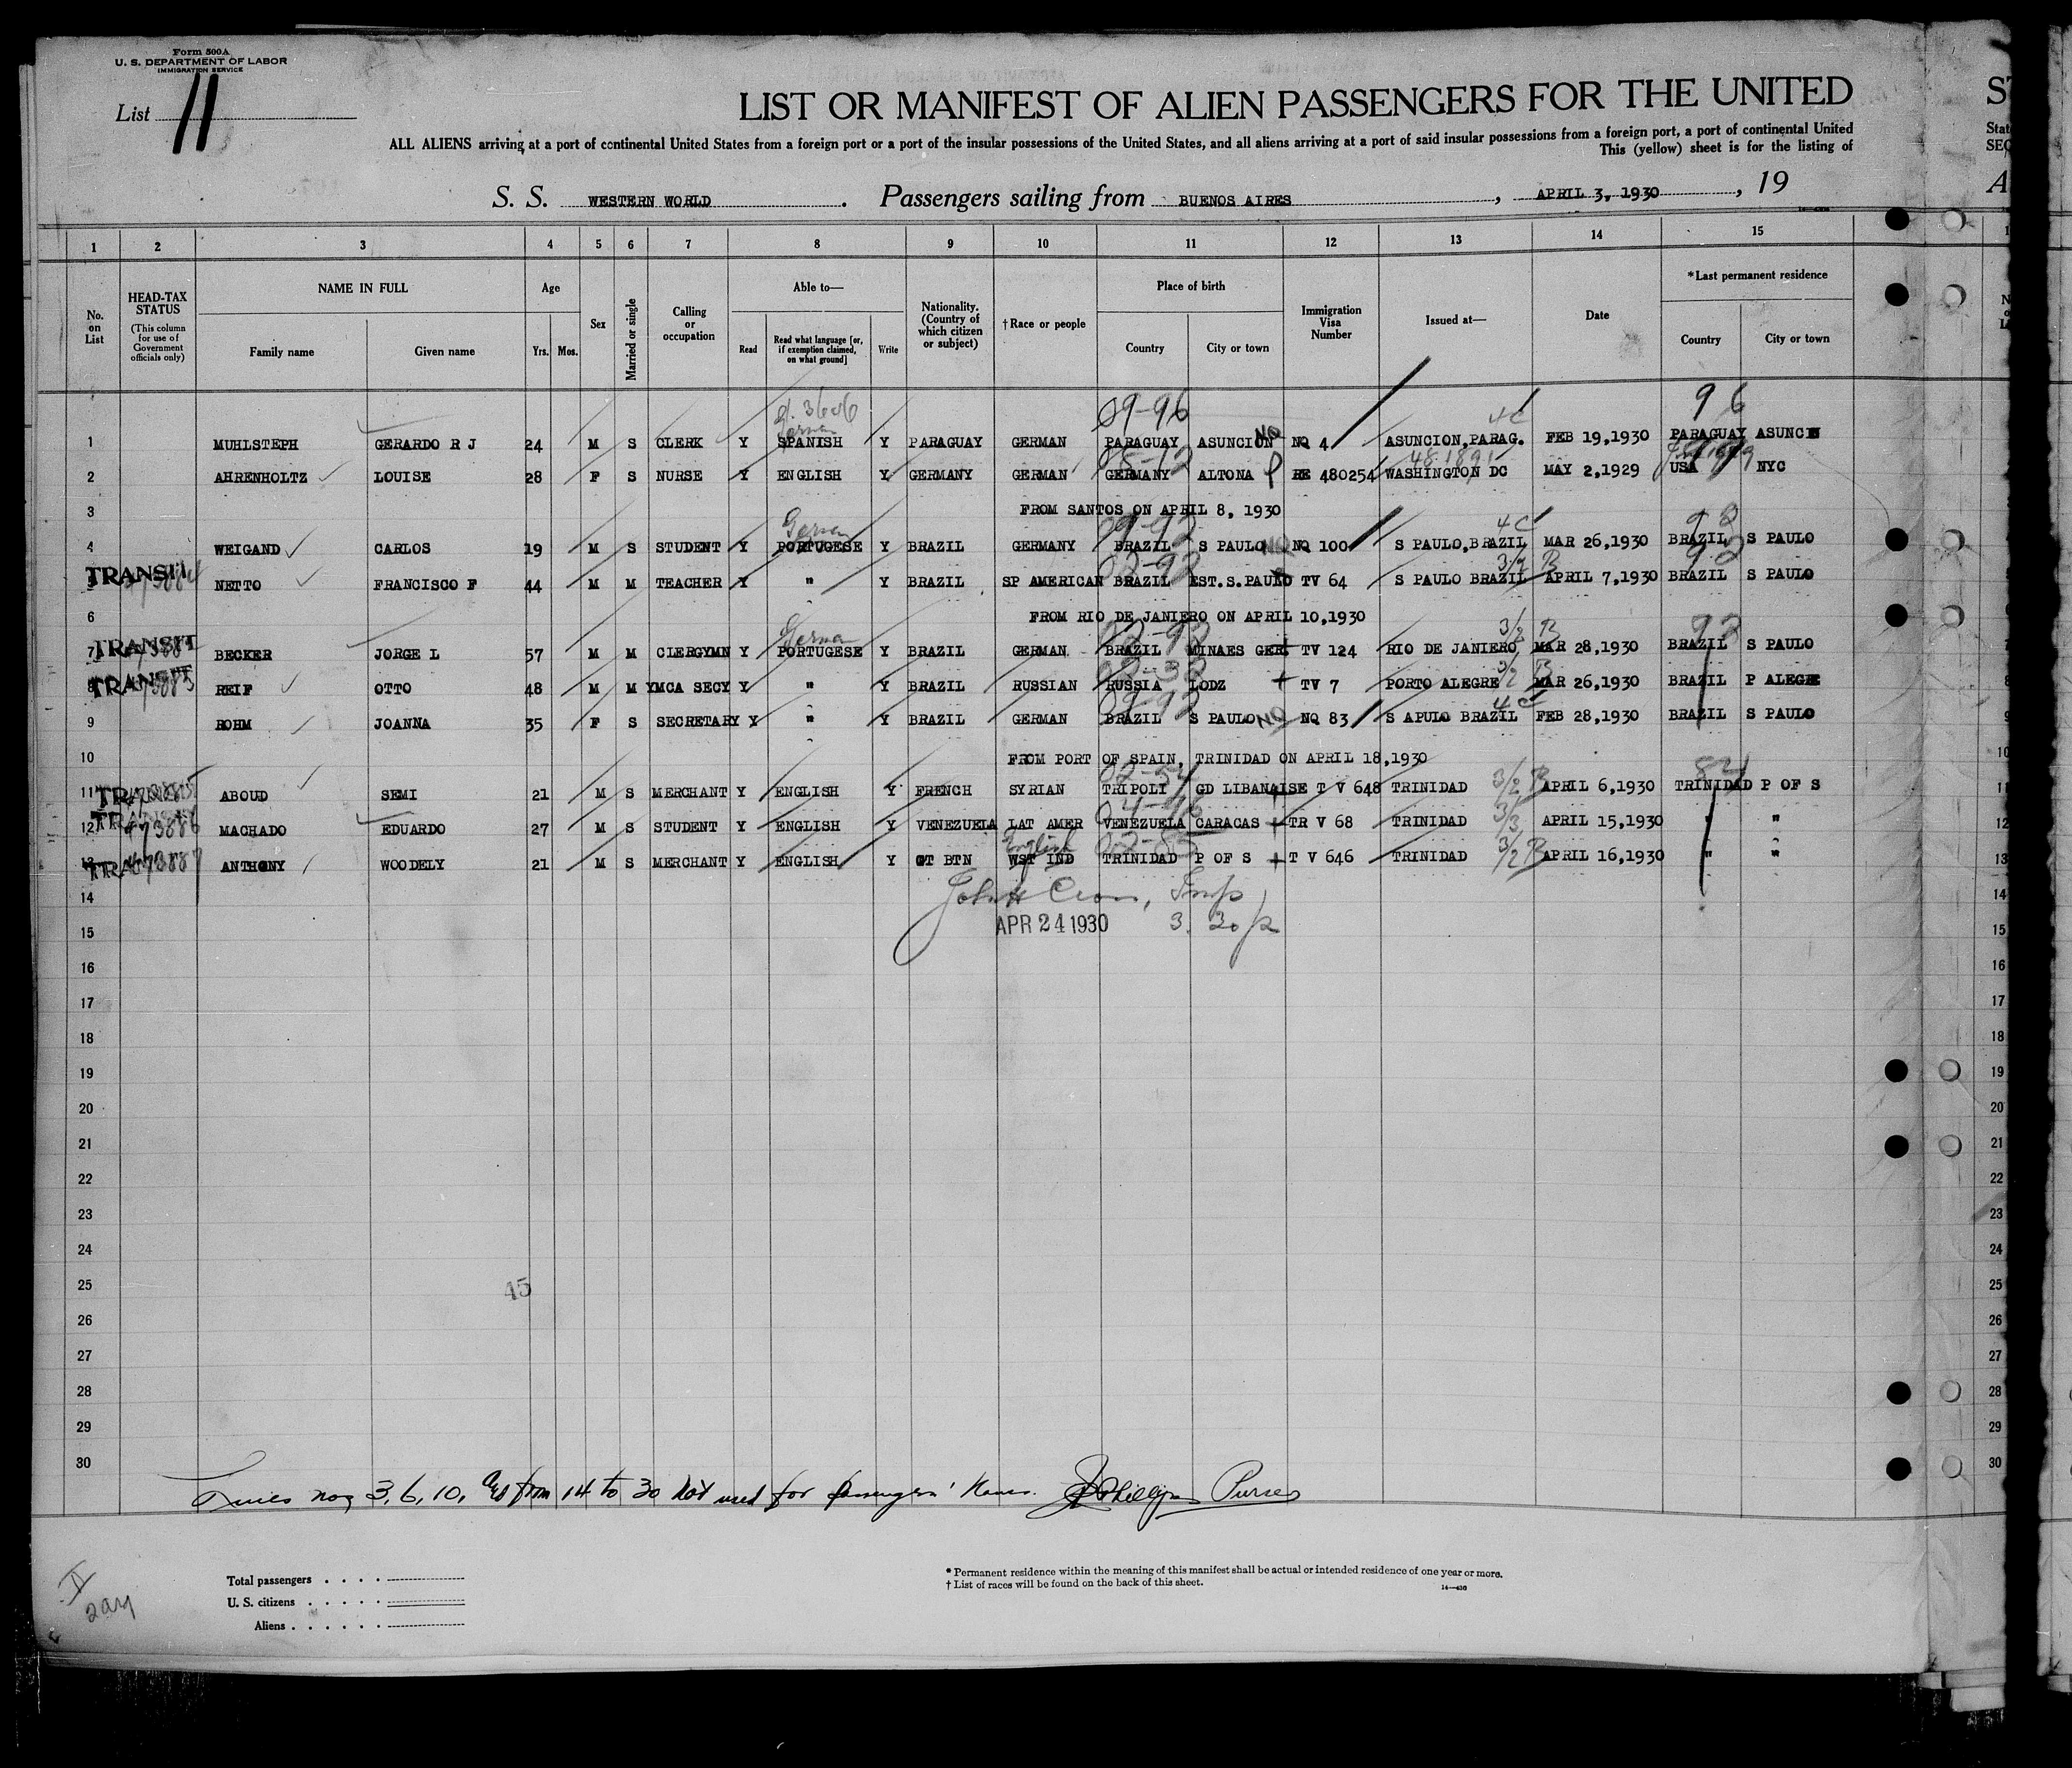 Form 500A
U. S. DEPARTMENT OF LABOR
IMMIGRATION SERVICE
List 11
LIST OR MANIFEST OF ALIEN PASSENGERS FOR THE UNITED
ALL ALIENS arriving at a port of continental United States from a foreign port or a port of the insular possessions of the United States, and all aliens arriving at a port of said insular possessions from a foreign port, a port of continental United
This (yellow) sheet is for the listing of
S. S. WESTERN WORLD. Passengers sailing from BUENOS AIRES, APRIL 3, 1930, 19
1 2 3 4 5 6 7 8 9 10 11 12 13 14 15
No. on List
HEAD-TAX STATUS (This column for use of Government officials only)
NAME IN FULL
Family name Given name
Age
Yrs. Mos.
Sex
Married or single
Calling or occupation
Able to—
Read Read what language [or, if exemption claimed, on what ground] Write
Nationality. (Country of which citizen or subject)
†Race or people
Place of birth
Country City or town
Immigration Visa Number
Issued at—
Date
*Last permanent residence
Country City or town
09-96 4C 96
German
1 MUHLSTEPH GERARDO R J 24 M S CLERK Y SPANISH Y PARAGUAY GERMAN PARAGUAY ASUNCION NQ 4 ASUNCION,PARAG. FEB 19,1930 PARAGUAY ASUNCIN
2 AHRENHOLTZ LOUISE 28 F S NURSE Y ENGLISH Y GERMANY GERMAN GERMANY ALTONA RE 480254 WASHINGTON DC MAY 2,1929 USA NYC
3 FROM SANTOS ON APRIL 8, 1930
German 4C
4 WEIGAND CARLOS 19 M S STUDENT Y PORTUGESE Y BRAZIL GERMANY BRAZIL S PAULO NQ 100 S PAULO,BRAZIL MAR 26,1930 BRAZIL S PAULO
TRANSIT
5 NETTO FRANCISCO F 44 M M TEACHER Y " Y BRAZIL SP AMERICAN BRAZIL EST.S.PAULO TV 64 S PAULO BRAZIL APRIL 7,1930 BRAZIL S PAULO
6 FROM RIO DE JANIERO ON APRIL 10,1930
TRANSIT German
7 BECKER JORGE L 57 M M CLERGYMN Y PORTUGESE Y BRAZIL GERMAN BRAZIL MINAES GER TV 124 RIO DE JANIERO MAR 28,1930 BRAZIL S PAULO
TRANSIT
8 REIF OTTO 48 M M YMCA SECY Y " Y BRAZIL RUSSIAN RUSSIA LODZ TV 7 PORTO ALEGRE MAR 26,1930 BRAZIL P ALEGRE
9 ROHM JOANNA 35 F S SECRETARY Y " Y BRAZIL GERMAN BRAZIL S PAULO NQ 83 S APULO BRAZIL FEB 28,1930 BRAZIL S PAULO
10 FROM PORT OF SPAIN, TRINIDAD ON APRIL 18,1930
TRANSIT
11 ABOUD SEMI 21 M S MERCHANT Y ENGLISH Y FRENCH SYRIAN TRIPOLI GD LIBANAISE T V 648 TRINIDAD APRIL 6,1930 TRINIDAD P OF S
TRANSIT
12 MACHADO EDUARDO 27 M S STUDENT Y ENGLISH Y VENEZUELA LAT AMER VENEZUELA CARACAS TR V 68 TRINIDAD APRIL 15,1930 " "
English
13 ANTHONY WOODELY 21 M S MERCHANT Y ENGLISH Y GT BTN WST IND TRINIDAD P OF S T V 646 TRINIDAD APRIL 16,1930 " "
14
APR 24 1930
15
16
17
18
19
20
21
22
23
24
25
45
26
27
28
29
30
Lines nos 3, 6, 10, and from 14 to 30 not used for passengers' names. Phillips Purser
Total passengers
U. S. citizens
Aliens
* Permanent residence within the meaning of this manifest shall be actual or intended residence of one year or more.
† List of races will be found on the back of this sheet.